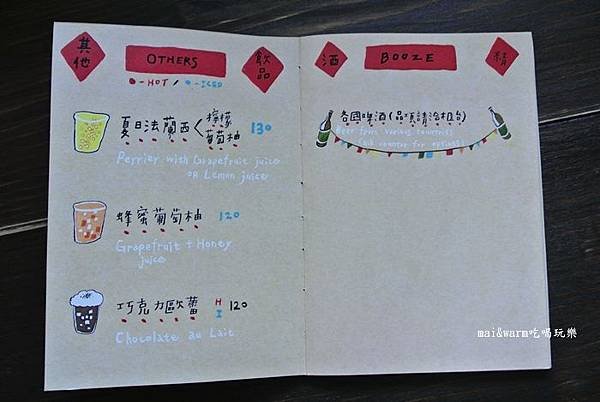 其他
OTHERS
飲品
-HOT / -ICED
夏日法蘭西
檸檬
葡萄柚
130
Perrier with Grapefruit juice
OR Lemon juice
蜂蜜葡萄柚 120
Grapefruit + Honey
juice
巧克力歐蕾 H I 120
Chocolate au Lait
酒
BOOZE
精
各國啤酒(品項請洽櫃台)
Beer from various countries
ask counter for options
mai&warm吃喝玩樂